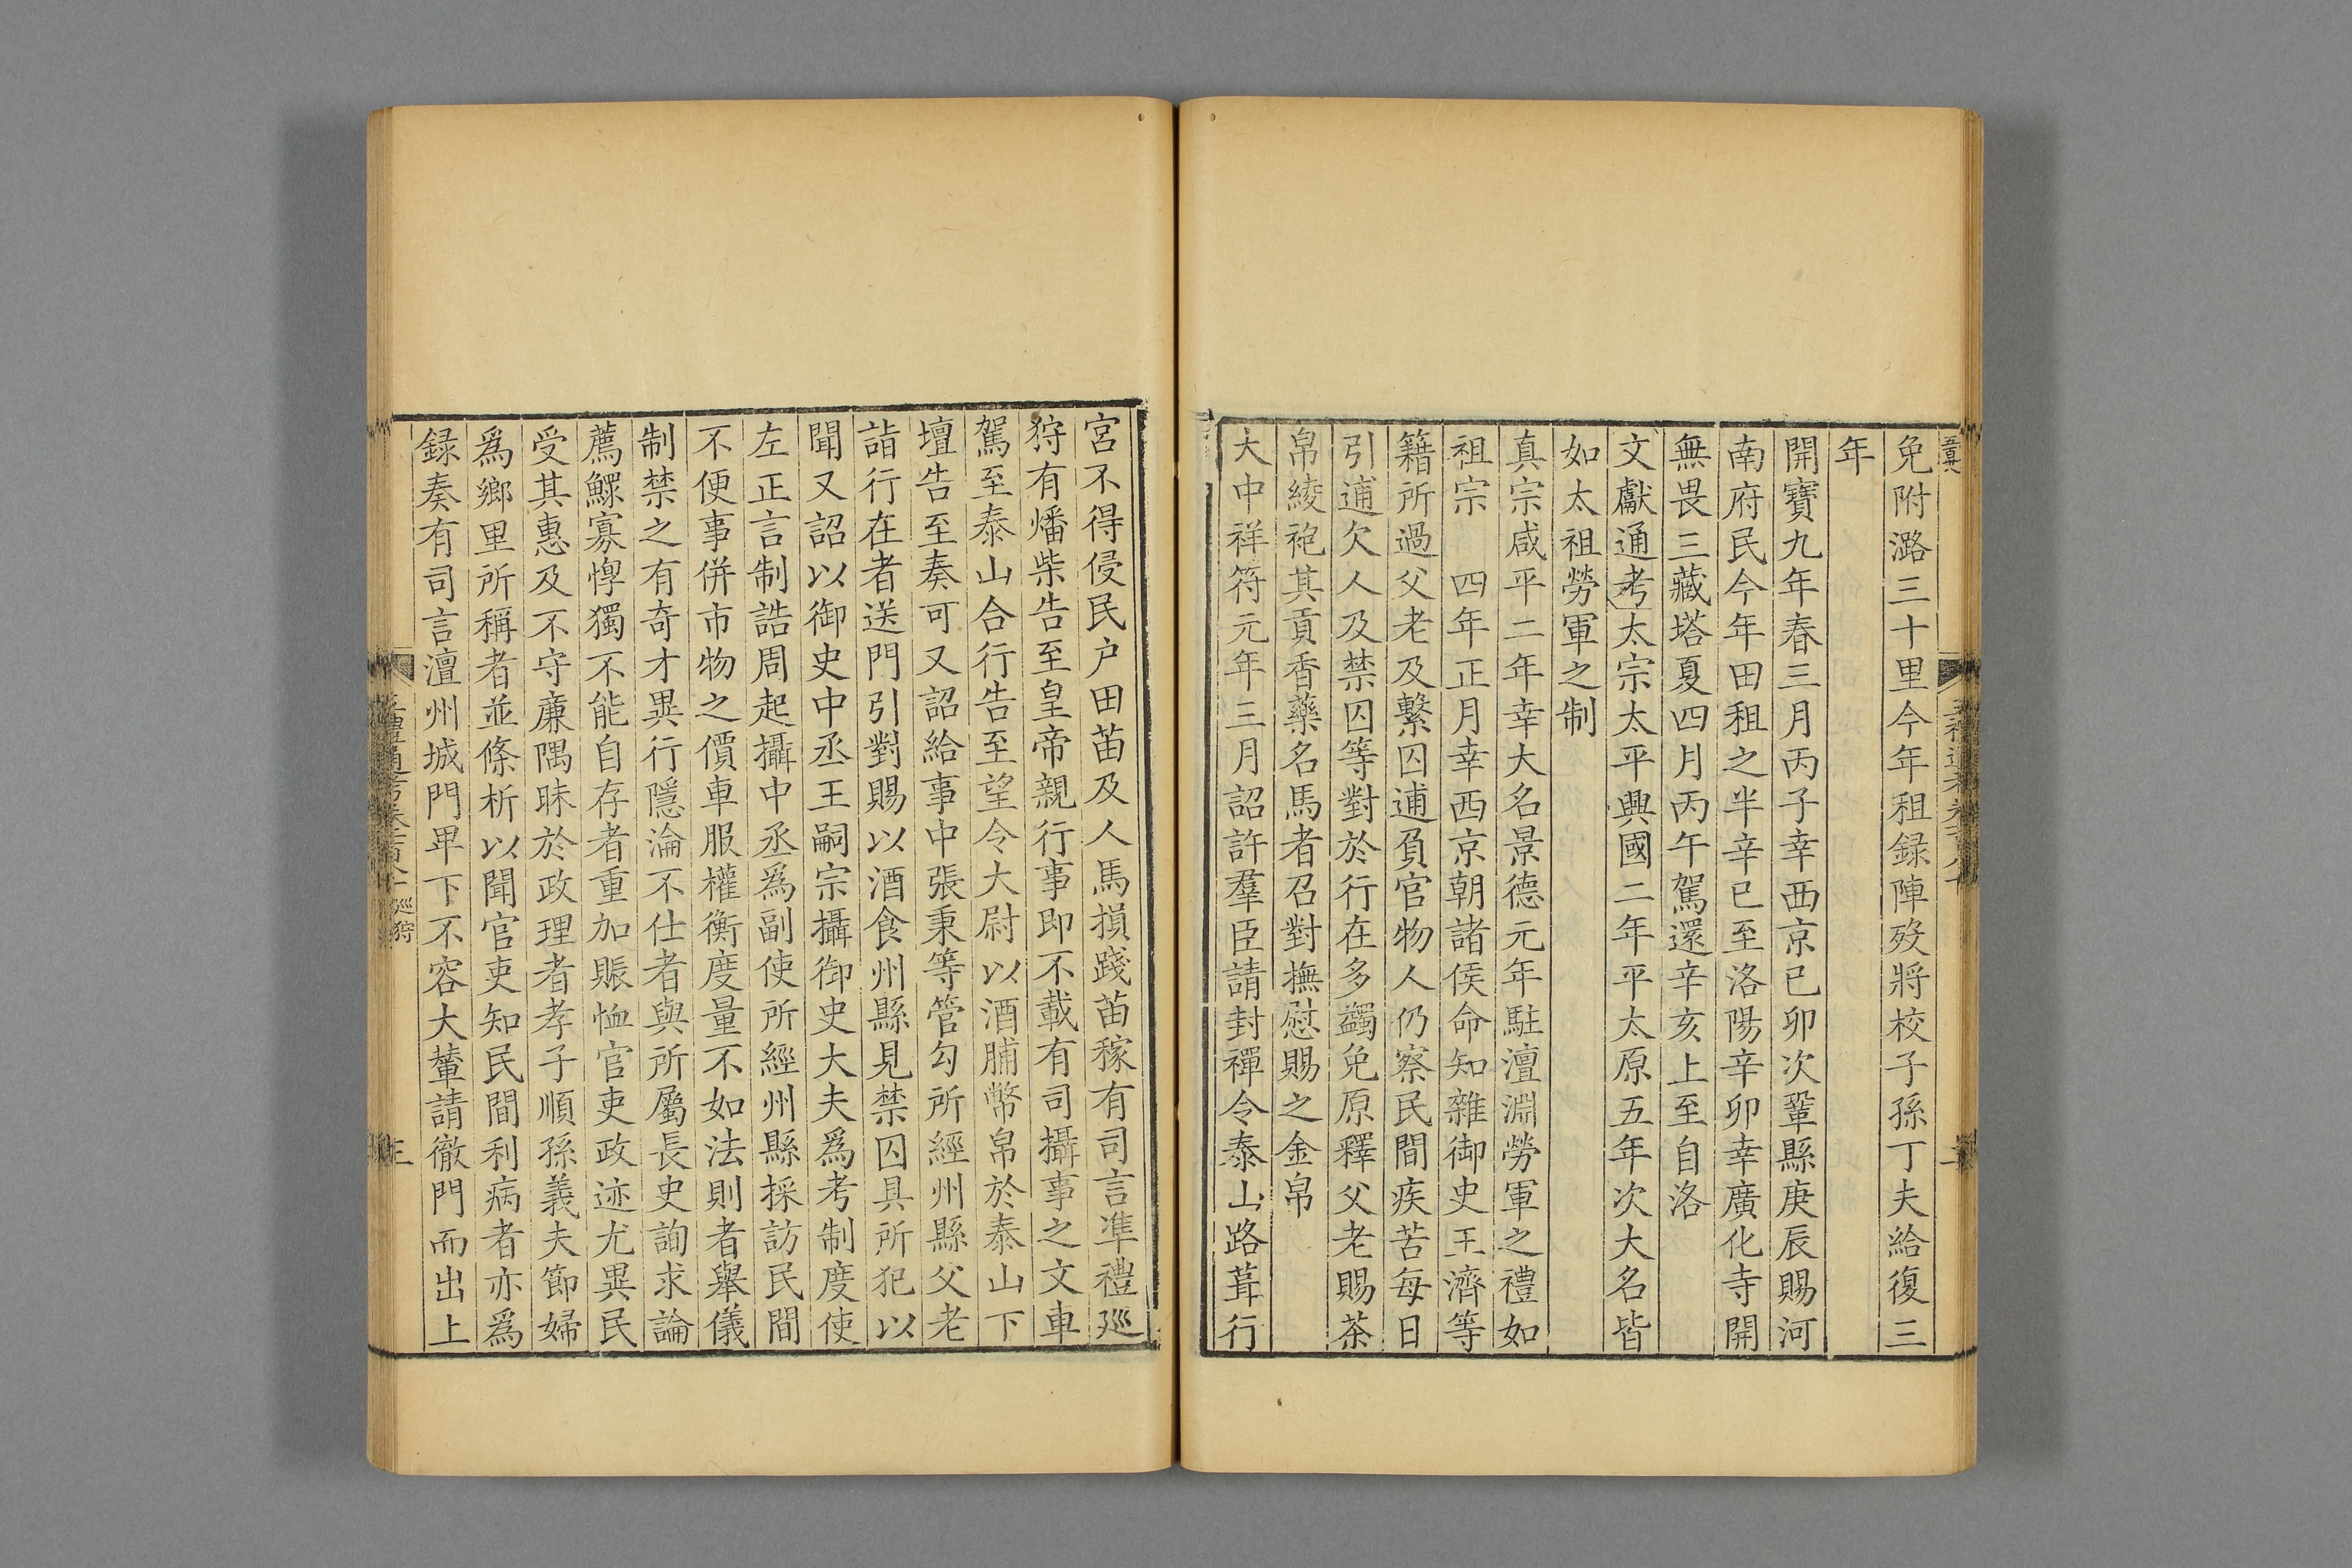 免附潞三十里今年租録陣歿將校子孫丁夫給復三
年
開寶九年春三月丙子幸西京已卯次鞏縣庚辰賜河
南府民今年田租之半辛已至洛陽辛卯幸廣化寺開
無畏三藏塔夏四月丙午駕還辛亥上至自洛
文獻通考太宗太平興國二年平太原五年次大名皆
如太祖勞軍之制
真宗咸平二年幸大名景德元年駐澶淵勞軍之禮如
祖宗 四年正月幸西京朝諸侯命知雜御史王濟等
籍所過父老及繫囚逋負官物人仍察民間疾苦每日
引逋欠人及禁囚等對於行在多蠲免原釋父老賜茶
帛綾袍其貢香藥名馬者召對撫慰賜之金帛
大中祥符元年三月詔許羣臣請封禪令泰山路葺行
宮不得侵民户田苗及人馬損踐苗稼有司言凖禮廵
狩有燔柴告至皇帝親行事即不載有司攝事之文車
駕至泰山合行告至望令大尉以酒脯幣帛於泰山下
壇告至奏可又詔給事中張秉等管勾所經州縣父老
詣行在者送門引對賜以酒食州縣見禁囚具所犯以
聞又詔以御史中丞王嗣宗攝御史大夫爲考制度使
左正言制誥周起攝中丞爲副使所經州縣採訪民間
不便事併市物之價車服權衡度量不如法則者舉儀
制禁之有奇才異行隱淪不仕者與所屬長史詢求論
薦鰥寡惸獨不能自存者重加賑恤官吏政迹尤異民
受其惠及不守廉隅昧於政理者孝子順孫義夫節婦
爲鄉里所稱者並條析以聞官吏知民間利病者亦爲
録奏有司言澶州城門卑下不容大輦請徹門而出上
廵狩